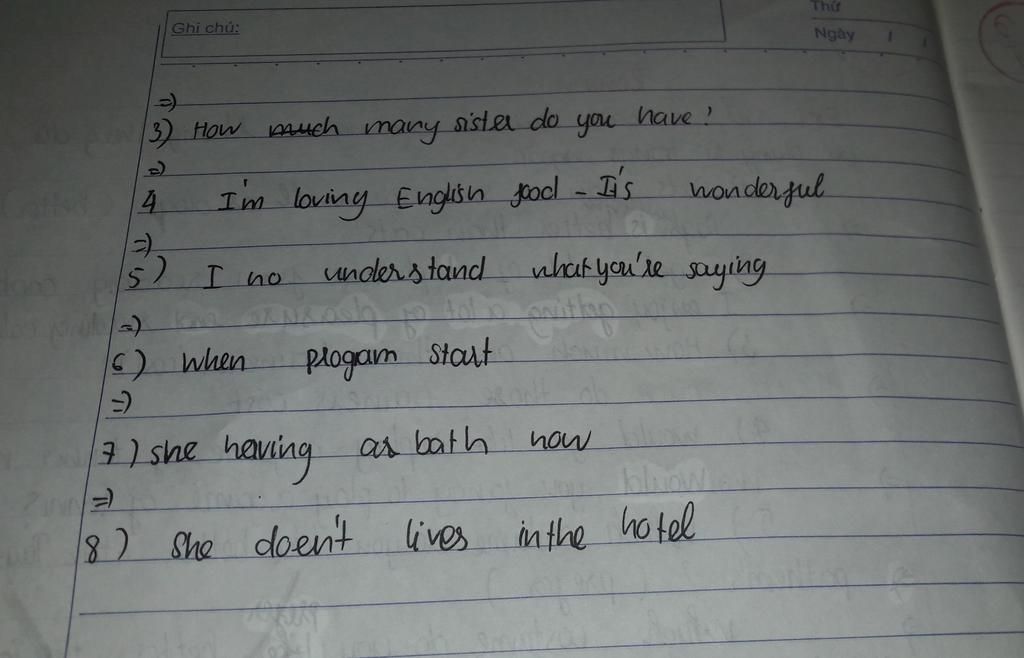 Ghi chú:
Thứ
Ngày / /
=)
3) How much many sister do you have?
=)
4 I'm loving English food - It's wonderful
=)
5) I no understand what you're saying
=)
6) When progam start
=)
7) she having as bath now
=)
8) she doen't lives in the hotel